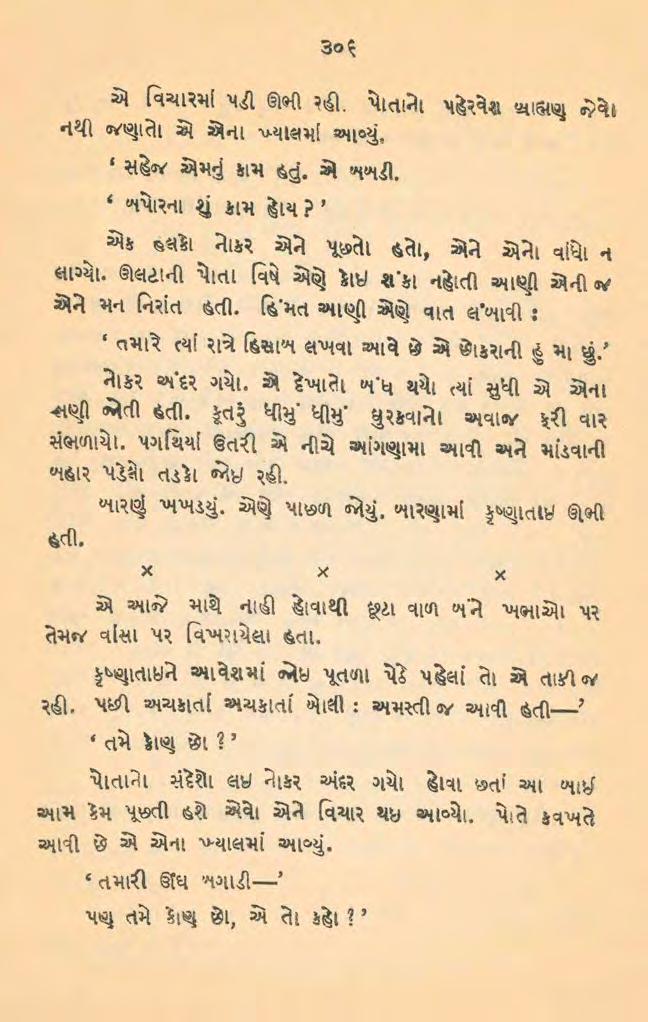 ૩૦૬
એ વિચારમાં પડી ઊભી રહી. પોતાનો પહેરવેશ બ્રાહ્મણ જેવો
નથી જણાતો એ એના ખ્યાલમાં આવ્યું.
‘ સહેજ એમનું કામ હતું. એ બબડી.
‘ બપોરના શું કામ હોય ? ’
એક હલકો નોકર એને પૂછતો હતો, એને એનો વાંધો ન
લાગ્યો. ઊલટાની પોતા વિષે એણે કોઇ શંકા નહોતી આણી એની જ
એને મન નિરાંત હતી. હિંમત આણી એણે વાત લંબાવી :
‘ તમારે ત્યાં રાત્રે હિસાબ લખવા આવે છે એ છોકરાની હું મા છું.’
નોકર અંદર ગયો. એ દેખાતો બંધ થયો ત્યાં સુધી એ એના
ભણી જોતી હતી. કૂતરૂં ધીમું ધીમું ઘુરકવાનો અવાજ ફરી વાર
સંભળાયો. પગથિયાં ઉતરી એ નીચે આંગણામા આવી અને માંડવાની
બહાર પડેલો તડકો જોઇ રહી.
બારણું ખખડયું. એણે પાછળ જોયું. બારણામાં કૃષ્ણાતાઇ ઊભી
હતી.
× × ×
એ આજે માથે નાહી હોવાથી છૂટા વાળ બંને ખભાઓ પર
તેમજ વાંસા પર વિખરાયેલા હતા.
કૃષ્ણાતાઇને આવેશમાં જોઇ પૂતળા પેઠે પહેલાં તો એ તાકી જ
રહી. પછી અચકાતાં અચકાતાં બોલી : અમસ્તી જ આવી હતી—’
‘ તમે કોણ છો ? ’
પોતાનો સંદેશો લઇ નોકર અંદર ગયો હોવા છતાં આ બાઈ
આમ કેમ પૂછતી હશે એવો એને વિચાર થઇ આવ્યો. પોતે કવખતે
આવી છે એ એના ખ્યાલમાં આવ્યું.
‘ તમારી ઊંઘ બગાડી—’
પણ તમે કોણ છો, એ તો કહો ? ’